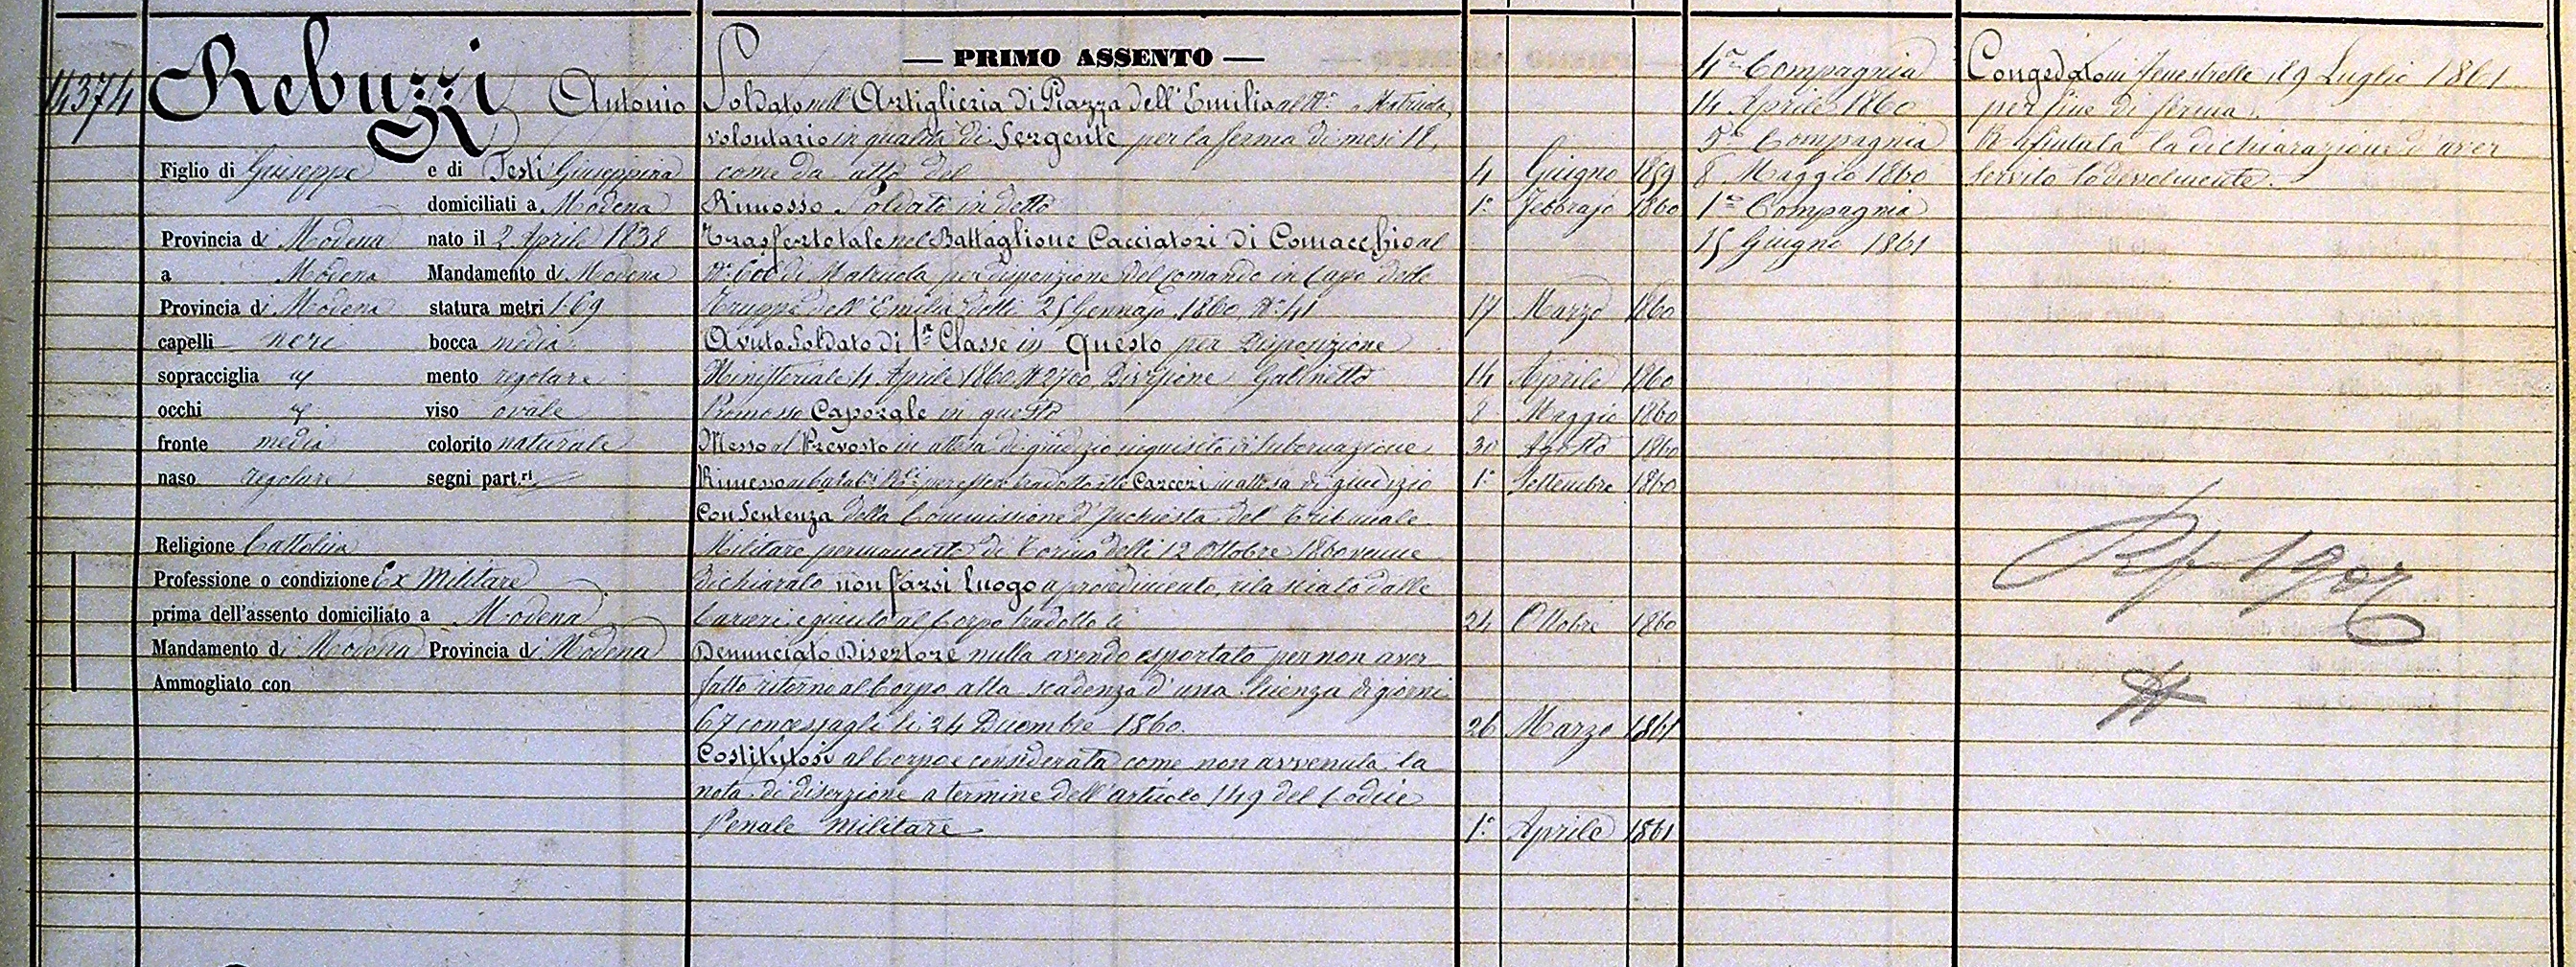 4374
Rebuzzi Antonio
Figlio di Giuseppe e di Testi Giuseppina
domiciliati a Modena
Provincia di Modena nato il 2 Aprile 1838
a Modena Mandamento di Modena
Provincia di Modena statura metri 1.69
capelli neri bocca media
sopracciglia mento regolare
occhi viso ovale
fronte media colorito naturale
naso regolare segni part.ri
Religione Cattolica
Professione o condizione Ex Militare
prima dell'assento domiciliato a Modena
Mandamento di Modena Provincia di Modena
Ammogliato con
— PRIMO ASSENTO —
Soldato nell'Artiglieria di Piazza dell'Emilia al N° Matricola
volontario in qualità di Sergente per la ferma di mesi 18,
come da atto del 4 Giugno 1859
Rimosso Soldato in detto 1° Febbrajo 1860
Trasferto tale nel Battaglione Cacciatori di Comacchio al
N° 600 di Matricola per disposizione del Comando in Capo delle
Truppe dell'Emilia delli 25 Gennajo 1860 N° 41 17 Marzo 1860
Avuto Soldato di 1ª Classe in Questo per Disposizione
Ministeriale 4 Aprile 1860 N 2700 Divisione Gabinetto 14 Aprile 1860
Promosso Caporale in questo 8 Maggio 1860
Messo al Prevosto in attesa di giudizio inquisito di subornazione 30 Agosto 1860
Rimesso per esser tradotto alle Carceri in attesa di giudizio 1° Settembre 1860
Con Sentenza della Commissione d'Inchiesta del Tribunale
Militare permanente di Torino delli 12 Ottobre 1860 venne
dichiarato non farsi luogo a procedimento, rilasciato dalle
Carceri e giunto al Corpo tradotto li 24 Ottobre 1860
Denunciato Disertore nulla avendo esportato per non aver
fatto ritorno al Corpo alla scadenza d'una licenza di giorni
67 concessagli li 24 Dicembre 1860. 26 Marzo 1861
Costitutosi al Corpo e considerata come non avvenuta la
nota di diserzione a termine dell'articolo 149 del Codice
Penale Militare 1° Aprile 1861
4ª Compagnia
14 Aprile 1860
5ª Compagnia
8 Maggio 1860
1ª Compagnia
15 Giugno 1861
Congedato in Fenestrelle il 9 Luglio 1861
per fine di ferma.
Rifiutata la dichiarazione d'aver
servito lodevolmente.